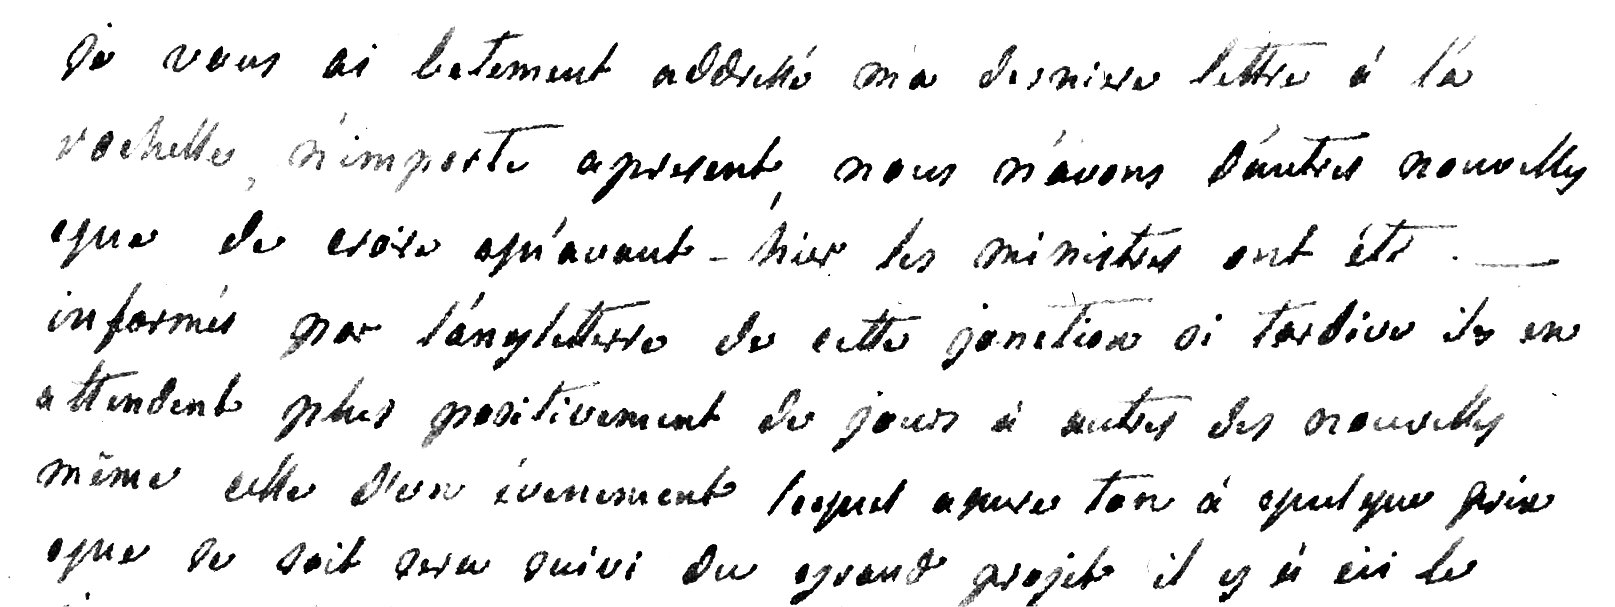 je vous ai betement addressé ma derniere lettre à la
rochelle, n'importe apresent, nous n'avons d'autres nouvelles
que de croire qu'avant-hier les ministres ont été
informés par l'angleterre de cette jonction si tardive ils en
attendent plus positivement de jours à autres des nouvelles
même celle d'un évenement lequel assure ton à quelque prix
que se soit sera suivi du grand projet il y à ici le